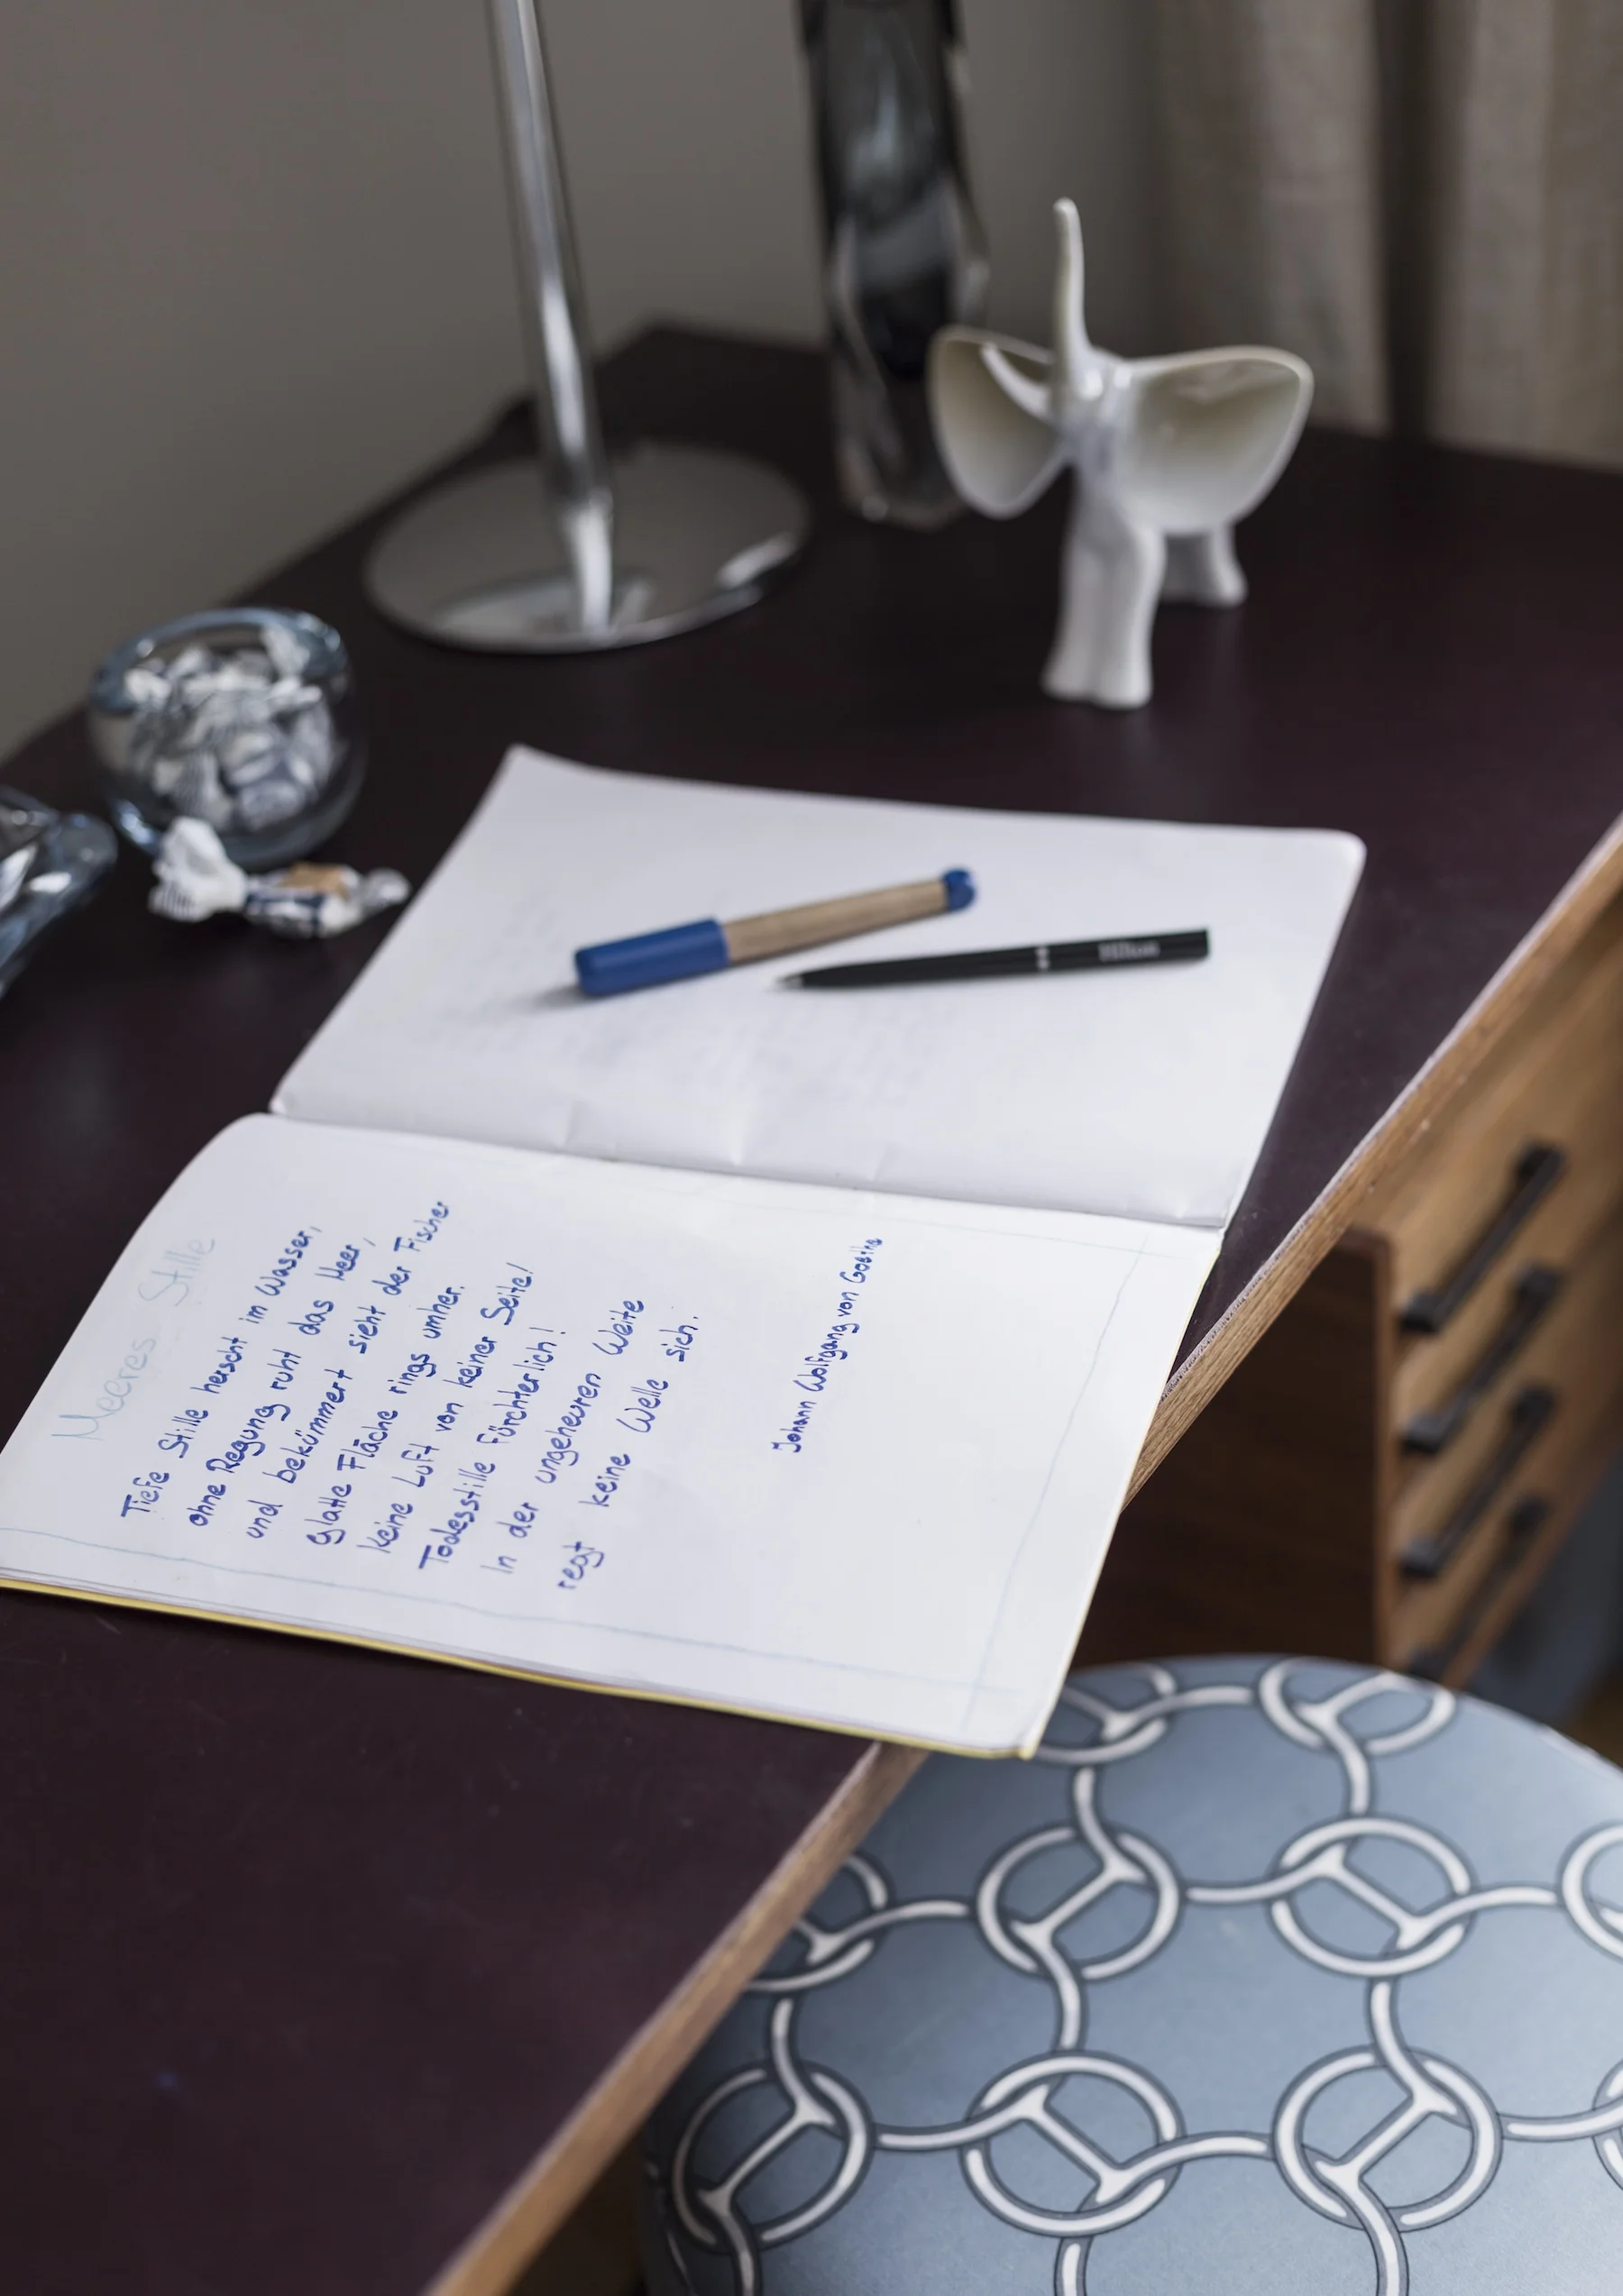 Meeres Stille
Tiefe Stille herscht im Wasser,
ohne Regung ruht das Meer,
und bekümmert sieht der Fischer
glatte Fläche rings umher.
Keine Luft von keiner Seite!
Todesstille fürchterlich!
In der ungeheuren Weite
regt keine Welle sich.
Johann Wolfgang von Goethe
Hilton